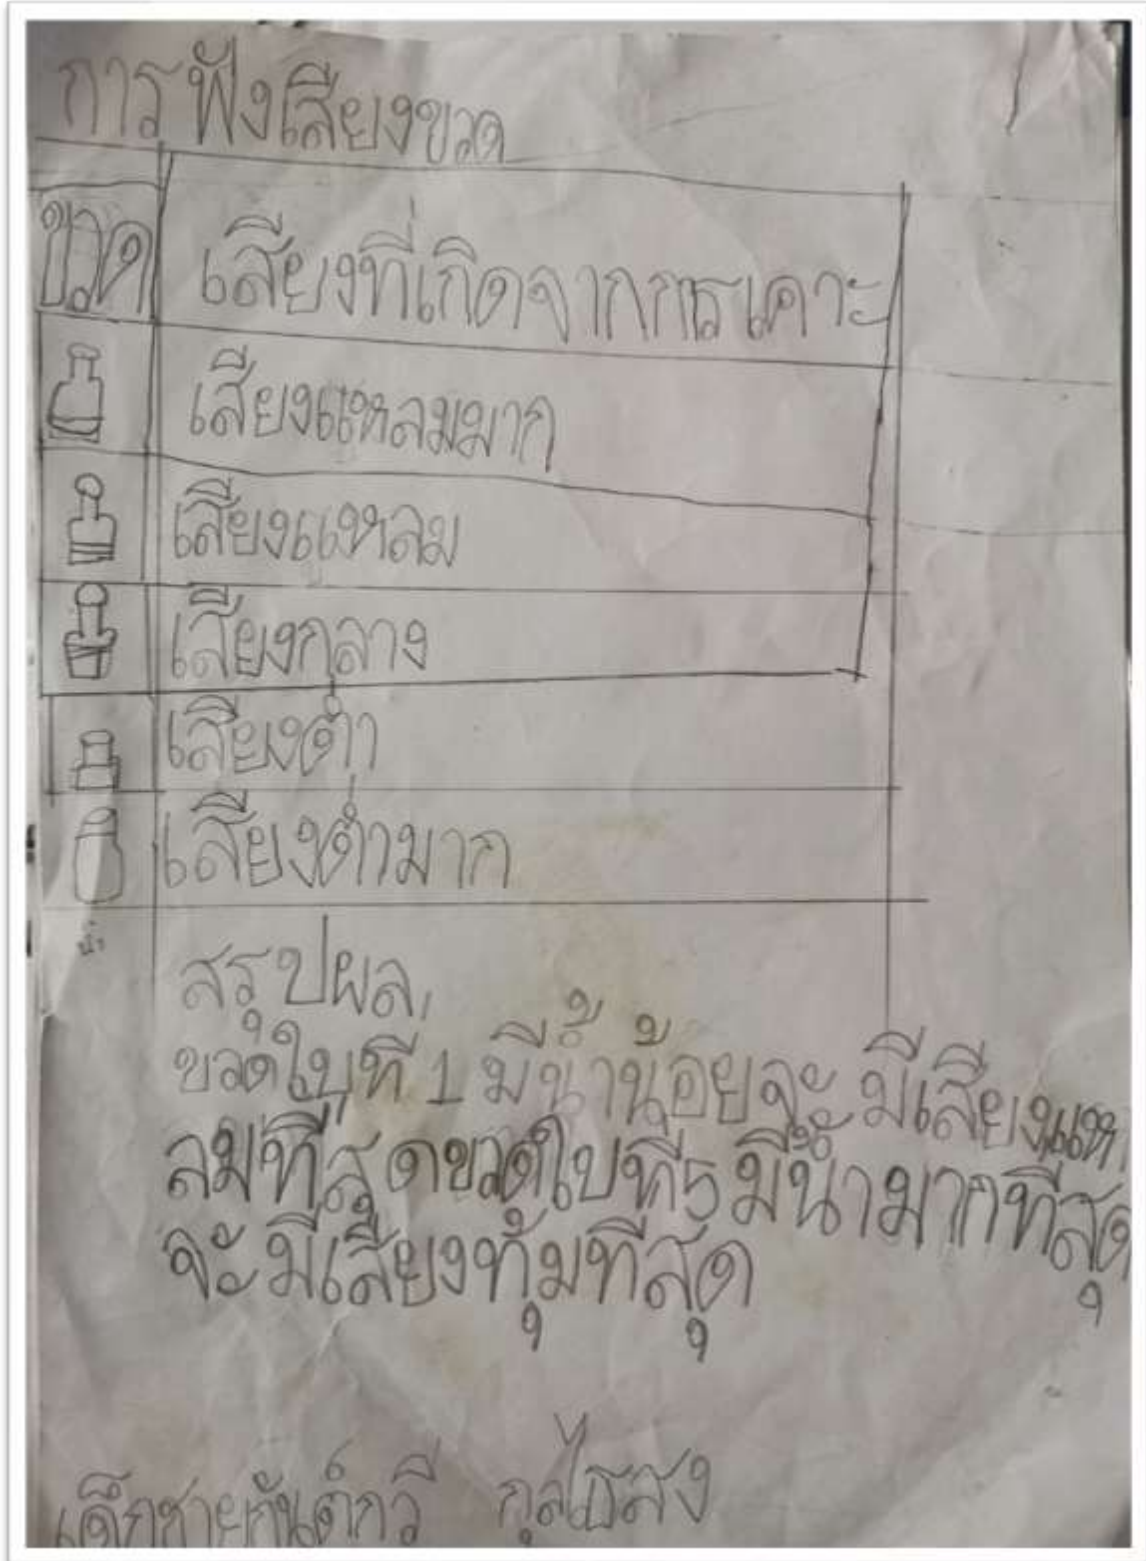 การฟังเสียงขวด
ขวด เสียงที่เกิดจากการเคาะ
เสียงแหลมมาก
เสียงแหลม
เสียงกลาง
เสียงต่ำ
เสียงต่ำมาก
สรุปผล
ขวดใบที่ 1 มีน้ำน้อยจะมีเสียงแห
ลมที่สุดขวดใบที่5 มีน้ำมากที่สุด
จะมีเสียงทุ้มที่สุด
เด็กชายกันต์กวี